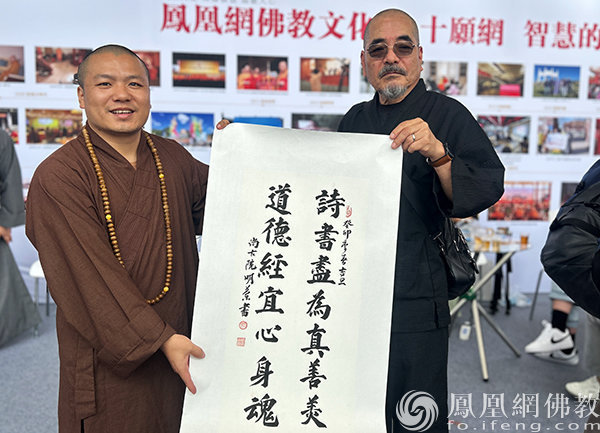 鳳凰網佛教文化 十願網 智慧的
詩書盡為真善美
癸卯季春吉旦
道德經宜心身魂
書
鳳凰網佛教
fo.ifeng.com